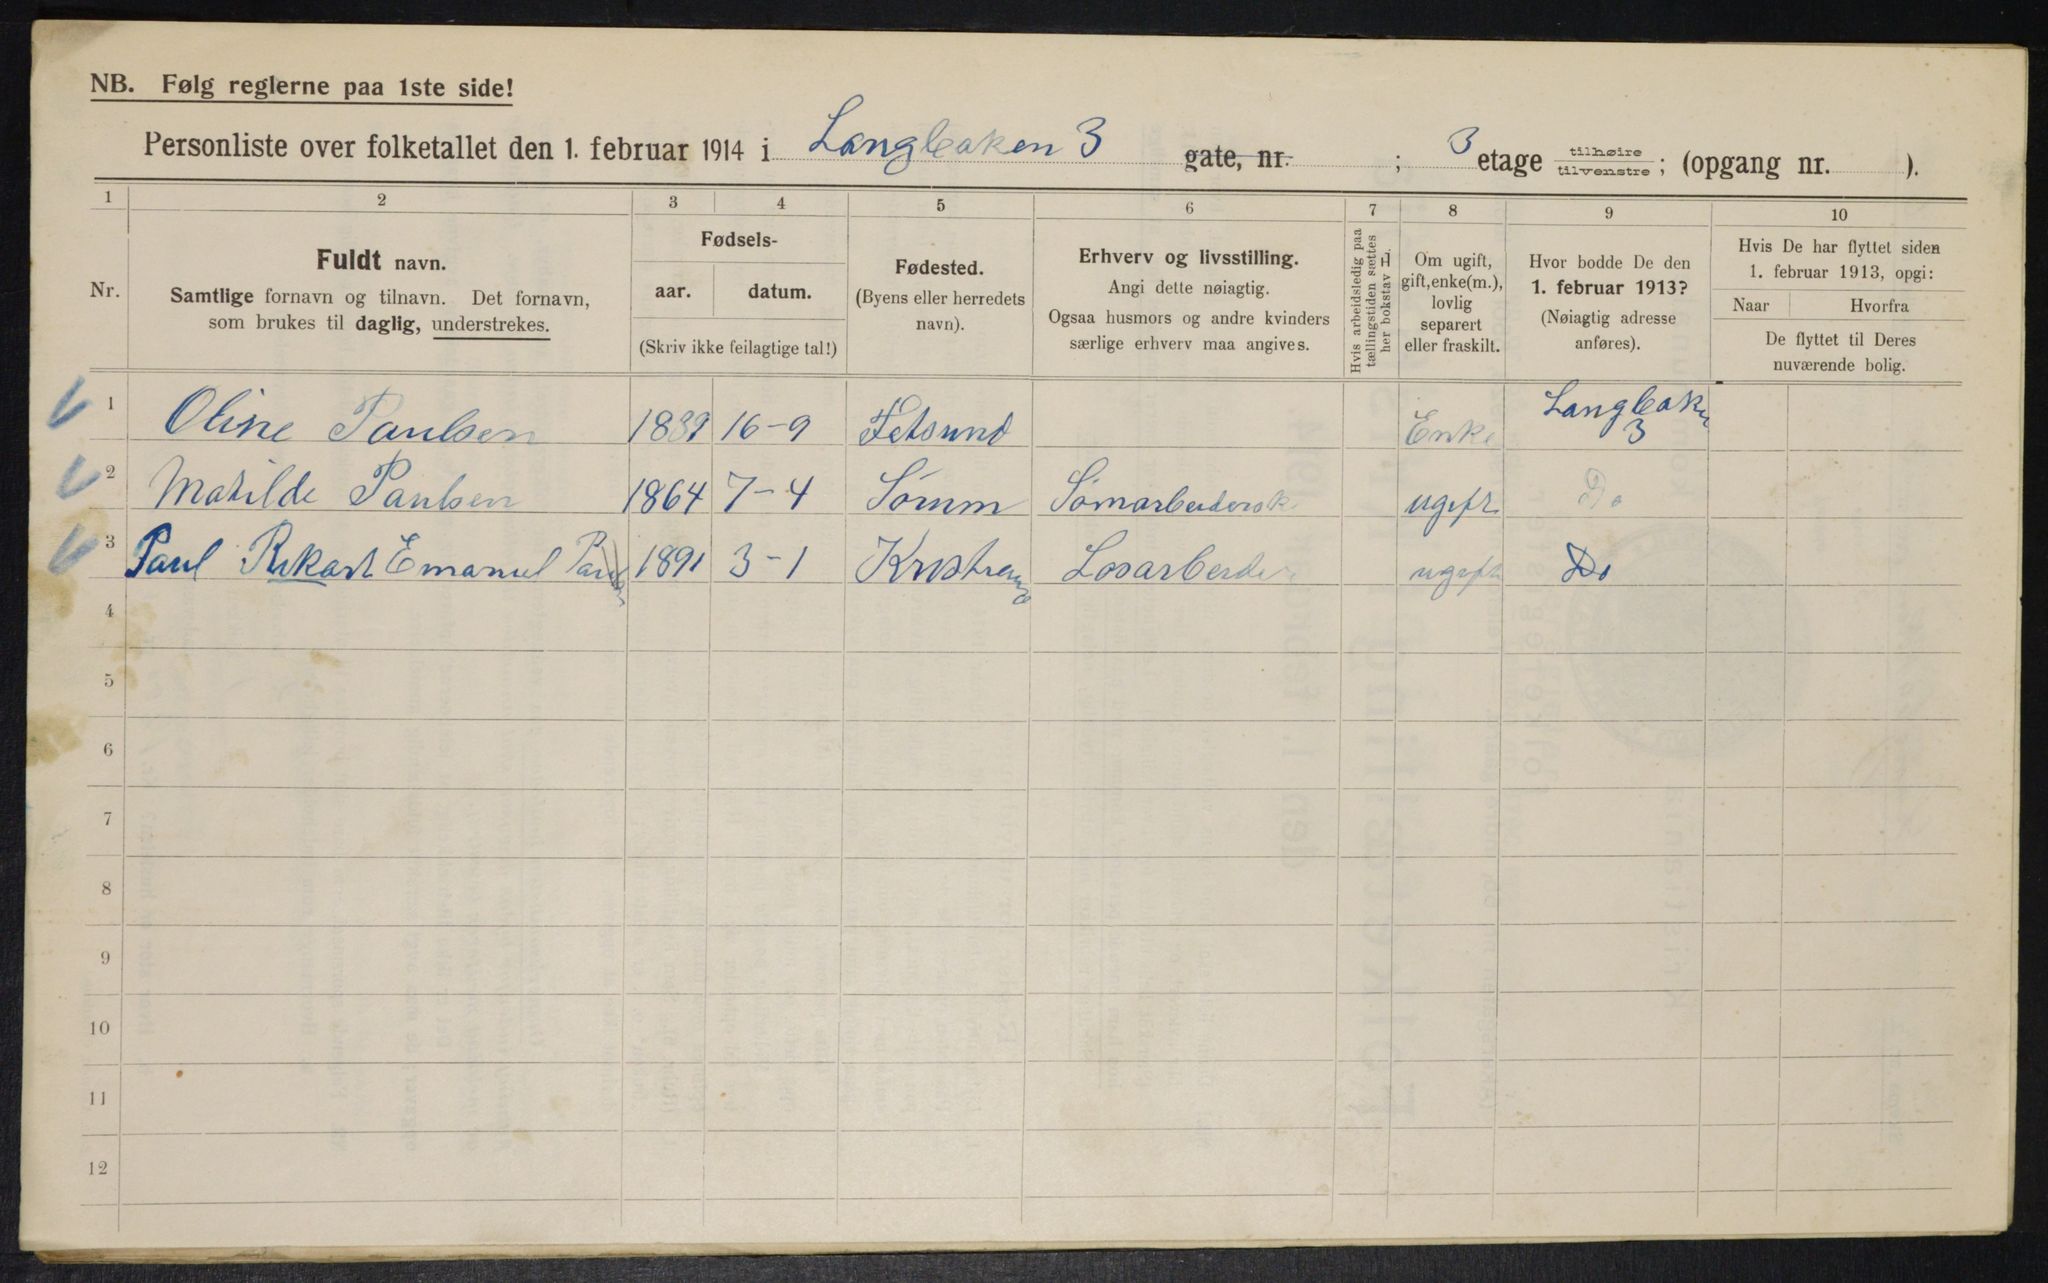 NB. Følg reglerne paa 1ste side!
Personliste over folketallet den 1. februar 1914 i Langleaken 3 gate, nr. ; 3 etage tilhøire tilvenstre ; (opgang nr. ).
1 2 3 4 5 6 7 8 9 10
Nr.
Fuldt navn.
Samtlige fornavn og tilnavn. Det fornavn,
som brukes til daglig, understrekes.
Fødsels-
aar. datum.
(Skriv ikke feilagtige tal!)
Fødested.
(Byens eller herredets
navn).
Erhverv og livsstilling.
Angi dette nøiagtig.
Ogsaa husmors og andre kvinders
særlige erhverv maa angives.
Hvis arbeidsledig paa
tællingstiden sættes
her bokstav L.
Om ugift,
gift, enke(m.),
lovlig
separert
eller fraskilt.
Hvor bodde De den
1. februar 1913?
(Nøiagtig adresse
anføres).
Hvis De har flyttet siden
1. februar 1913, opgi:
Naar Hvorfra
De flyttet til Deres
nuværende bolig.
1 Oline Paulsen 1839 16-9 Fetsund Enke Langleaken 3
2 Matilde Paulsen 1864 7-4 Sørum ugift Do
3 Paul Rikart Emanuel Paulsen 1891 3-1 Kristiania Losarbeider ugift Do
4
5
6
7
8
9
10
11
12